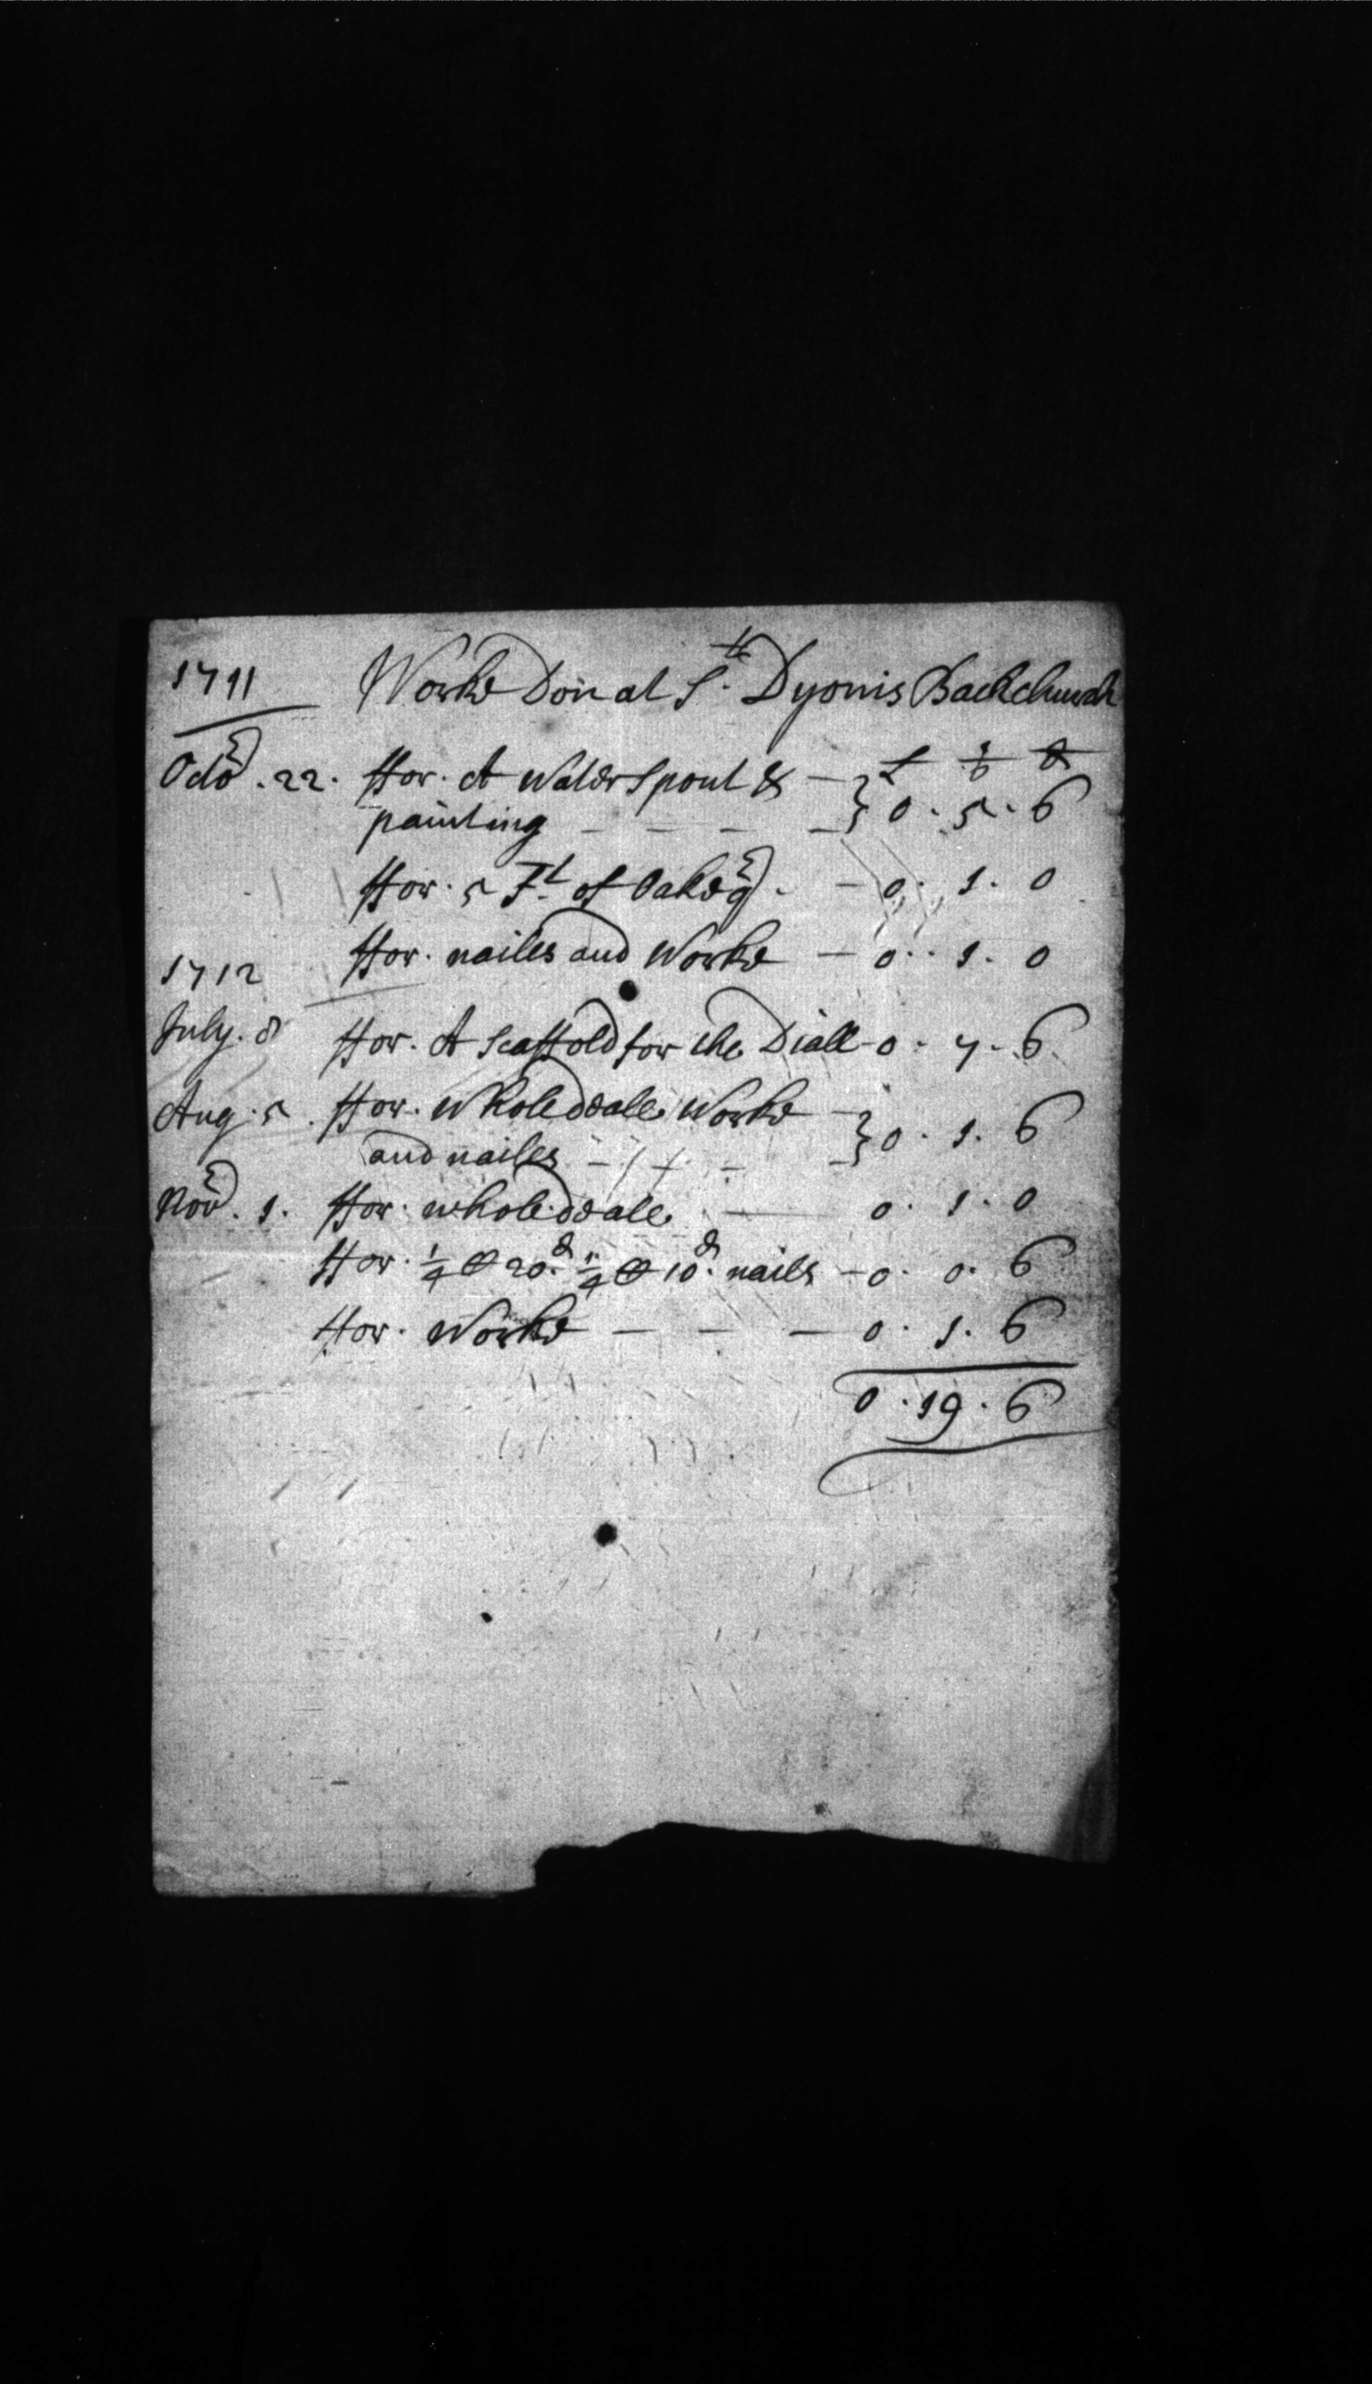 1711 Worke Don at St Dyonis Backchurch
£ s d
Octor . 22 . ffor . A Water Spout & —
painting — — — — } 0 . 5 . 6
ffor . 5 Ft of Oake — 0 . 1 . 0
ffor . nailes and Worke — 0 . 1 . 0
1712
July . 8 ffor . A Scaffold for the Diall - 0 . 7 . 6
Aug . 5 . ffor . whole deale Worke —
and nailes - - - - } 0 . 1 . 6
Novr . 1 . ffor . whole deale — 0 . 1 . 0
ffor . 1/4 20d . 1/4 10d . nails — 0 . 0 . 6
ffor . Worke — — — 0 . 1 . 6
0 . 19 . 6